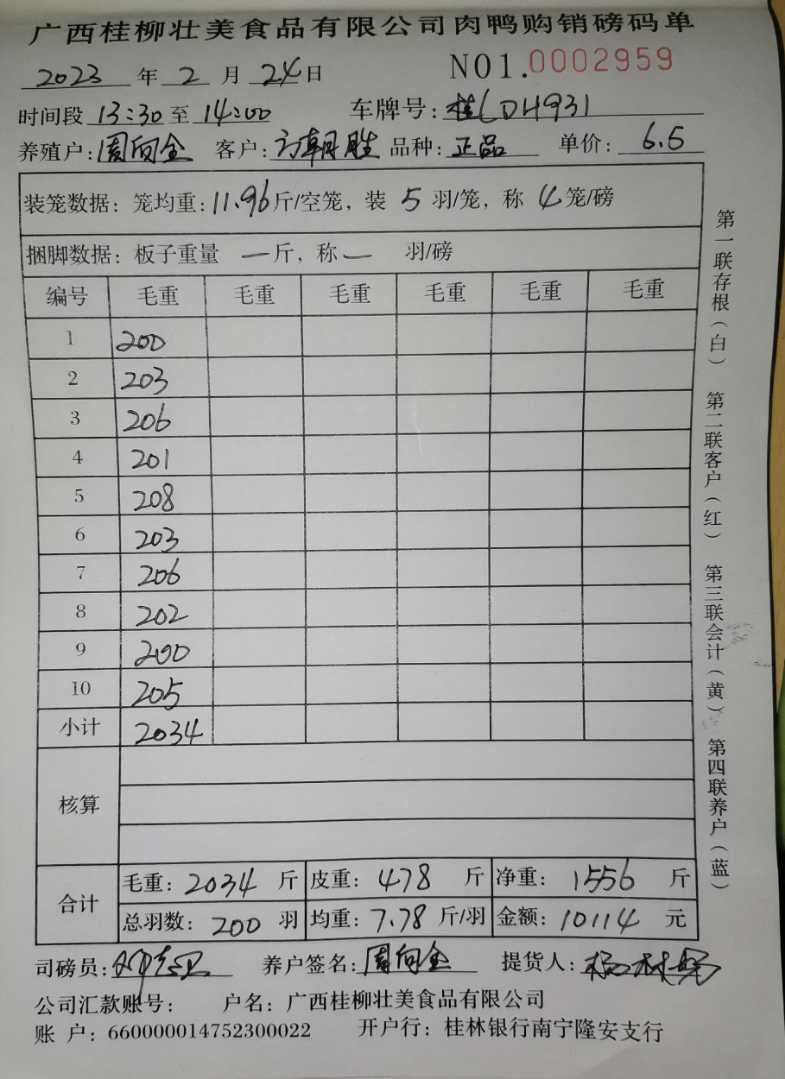 广西桂柳壮美食品有限公司肉鸭购销磅码单
2023 年 2 月 24 日 NO1.0002959
时间段 13:30 至 14:00 车牌号: 桂LDH931
养殖户: 周向金 客户: 方朝胜 品种: 正品 单价: 6.5
装笼数据: 笼均重: 11.96 斤/空笼, 装 5 羽/笼, 称 4 笼/磅
捆脚数据: 板子重量 — 斤, 称 — 羽/磅
编号 毛重 毛重 毛重 毛重 毛重 毛重
1 200
2 203
3 206
4 201
5 208
6 203
7 206
8 202
9 200
10 205
小计 2034
核算
合计 毛重: 2034 斤 皮重: 478 斤 净重: 1556 斤
总羽数: 200 羽 均重: 7.78 斤/羽 金额: 10114 元
司磅员: 养户签名: 周向金 提货人:
公司汇款账号: 户名: 广西桂柳壮美食品有限公司
账 户: 660000014752300022 开户行: 桂林银行南宁隆安支行
第一联存根(白) 第二联客户(红) 第三联会计(黄) 第四联养户(蓝)